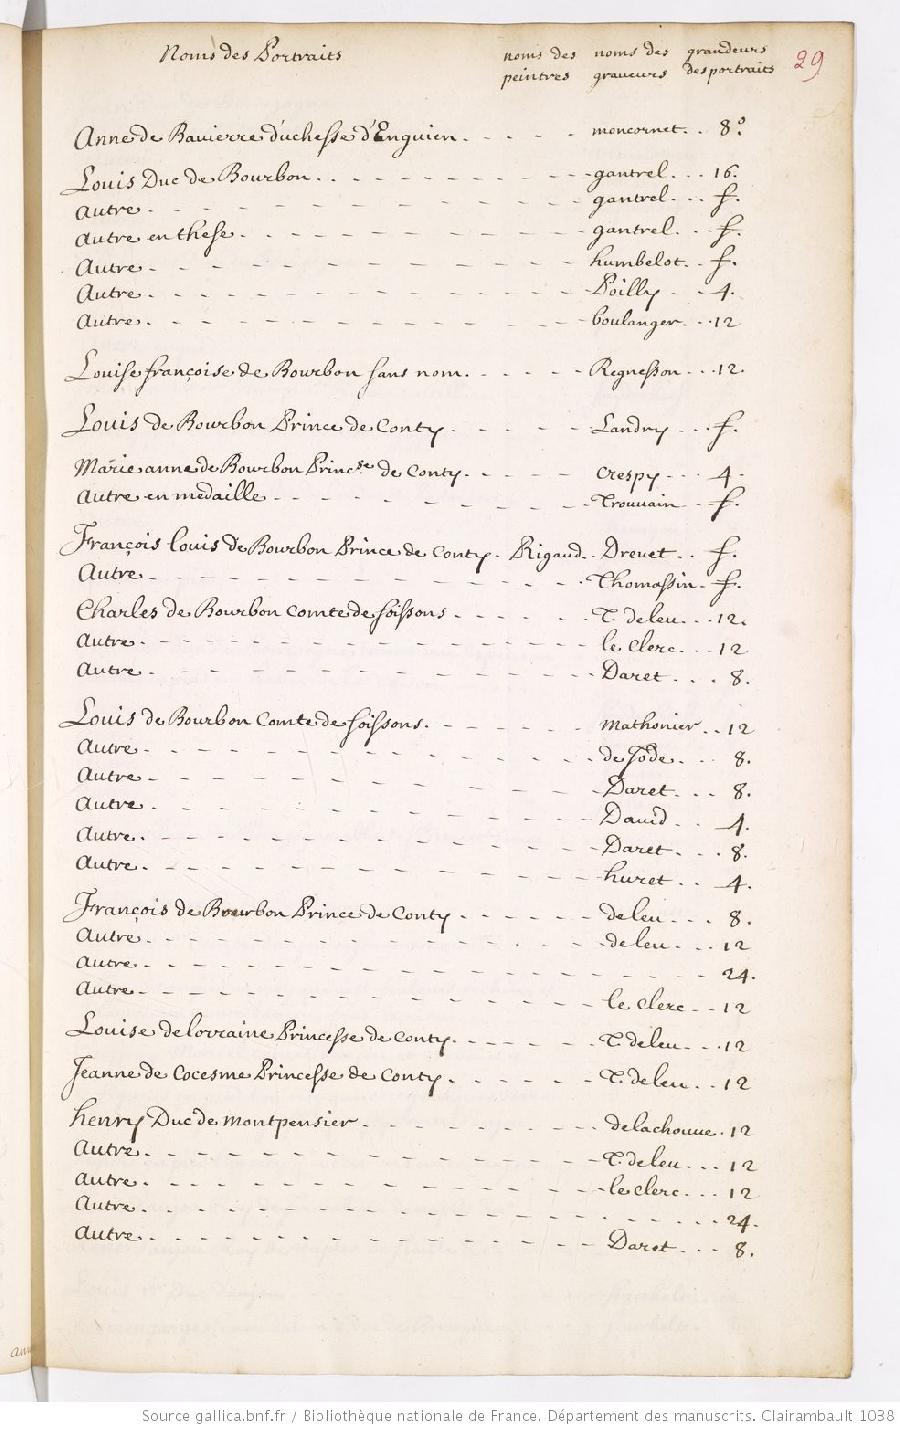 Noms des Portraits noms des peintres noms des graveurs grandeurs des portraits 29
Anne de Bauierre d'uchesse d'Enguien. moncornet. 8º
Louis Duc de Bourbon. gantrel. 16.
Autre. gantrel. f.
Autre en these. gantrel. f.
Autre. humbelot. f.
Autre. Poilly 4.
Autre. boulanger. 12
Louise françoise de Bourbon sans nom. Regnesson. 12.
Louis de Bourbon Prince de Conty. Landry. f.
Marie anne de Bourbon Princ.se de Conty. Crespy. 4.
Autre en medaille Trouuain. f.
François Louis de Bourbon Prince de Conty. Rigaud. Dreuet. f.
Autre. Thomassin. f.
Charles de Bourbon Comte de soissons. T. deleu. 12.
Autre. le Clerc. 12
Autre. Daret. 8.
Louis de Bourbon Comte de soissons. mathonier. 12
Autre. de Jode. 8.
Autre. Daret. 8.
Autre. Dauid. 4.
Autre. Daret. 8.
Autre. huret. 4.
François de Bourbon Prince de Conty. deleu. 8.
Autre. deleu. 12
Autre. 24.
Autre. le Clerc. 12
Louise de lorraine Princesse de Conty. T. deleu. 12
Jeanne de Cocesme Princesse de Conty. T. deleu. 12
henry Duc de montpensier. delachouue. 12
Autre. T. deleu. 12
Autre. le clerc. 12
Autre. 24.
Autre. Daret. 8.
Source gallica.bnf.fr / Bibliothèque nationale de France. Département des manuscrits. Clairambault 1038